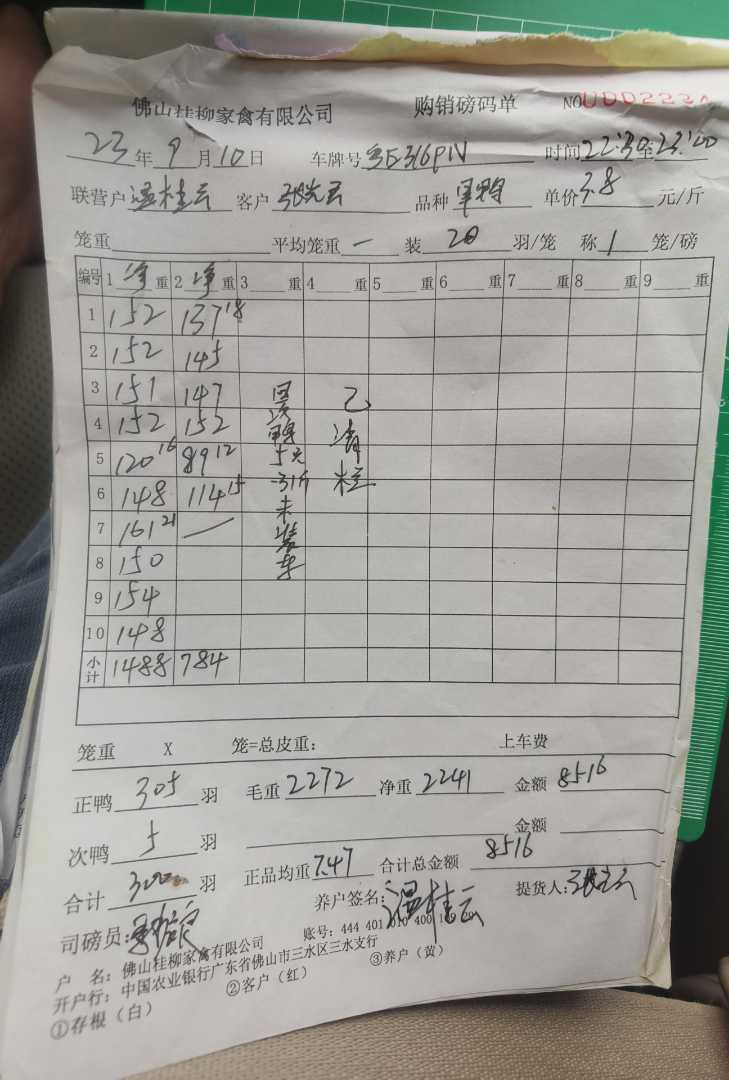 佛山桂柳家禽有限公司 购销磅码单 NO
23年9月10日 车牌号 时间22:30至23:00
联营户温桂云 客户 品种 单价3.8元/斤
笼重 平均笼重— 装20羽/笼 称1笼/磅
编号 1净重 2净重 3重 4重 5重 6重 7重 8重 9重
1 152 137 18
2 152 145
3 151 147
4 152 152
5 120 16 89 12
6 148 114 15
7 161 21 —
8 150
9 154
10 148
小计 1488 784
5只
31斤
未
装
车
笼重 X 笼=总皮重: 上车费
正鸭305羽 毛重2272 净重2241 金额8516
次鸭5羽 金额
合计羽 正品均重7.47 合计总金额8516
司磅员: 养户签名:温桂云 提货人:
户 名: 佛山桂柳家禽有限公司 账号: 444 401 010 400
开户行: 中国农业银行广东省佛山市三水区三水支行
①存根(白) ②客户(红) ③养户(黄)